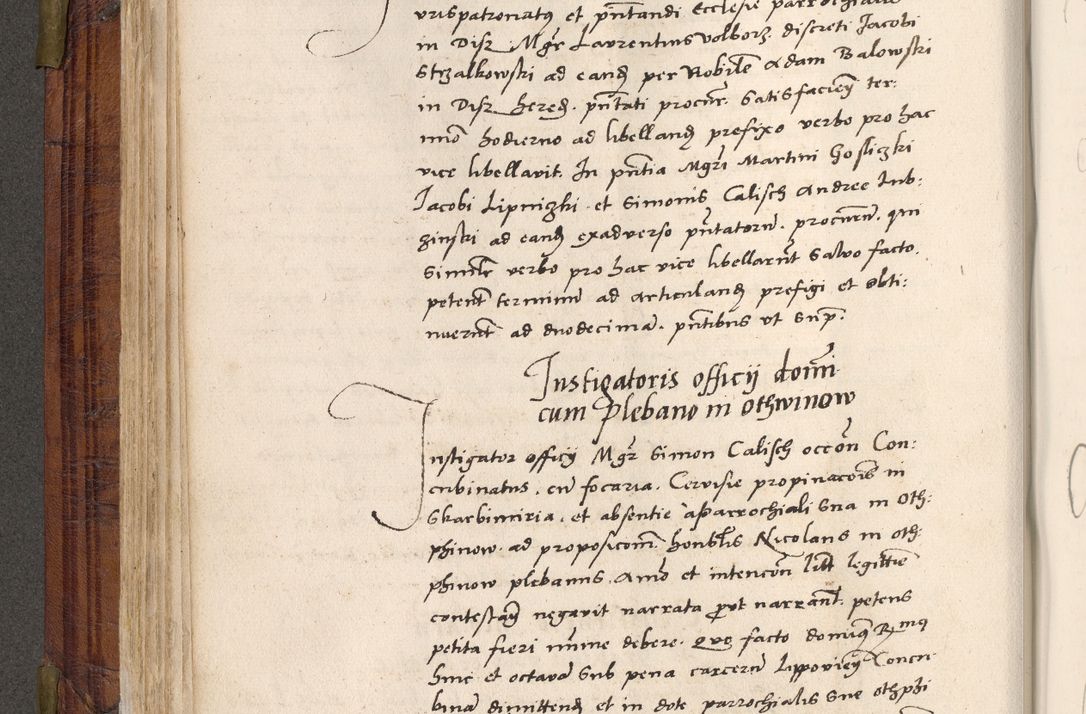 urispatronatus et pñtandi Ecclesie parrochialis
in Disz Mgr Laurentius Volborz discreti Jacobi
Strzalkowski ad eand per Nobilem Adam Balowski
in Disz hered. pñtati procur. satisfacien ter:
mino hodierno ad libelland prefixo verbo pro hac
vice libellavit. In pñtia Mgri Martini Gosliczki
Jacobi Lipniczki et Simonis Calisch Andree Lub:
zinski ad eand exadverso pñtatorum procurum. qui
Simile verbo pro hac vice libellarunt salvo facto.
petent terminum ad articuland prefigi et obti:
nuerunt ad duodecima. pñtibus ut supr.
Instigatoris officij domi
cum Plebano in Othwinow
Instigator officij Mgr Simon Calisch occoñ Con:
cubinatus. cu focaria. Cervisie propinacois in
Skarbimiria. et absentie a parrochiali sua in Oth:
phinow. ad proposicom. honblis Nicolaus in Oth:
phinow plebanus. Aīo et intencoñ lit legittime
contestan negavit narrata prout narrant. petens
petita fieri minime debere. Quo facto dominus Rmus
hinc et octava sub pena carcerum Lippovien Concu
bina dimittend et in dote parrochialis sue Othphi